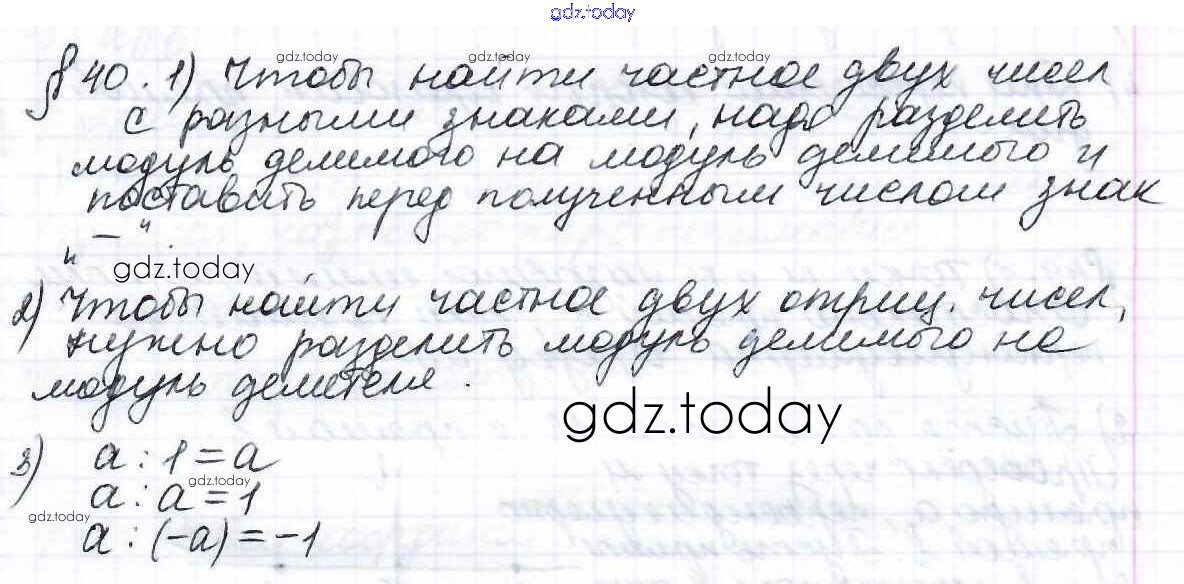 gdz.today
gdz.today gdz.today gdz.today
§ 40. 1) Чтобы найти частное двух чисел
с разными знаками, надо разделить
модуль делимого на модуль делимого и
поставить перед полученным числом знак
„ — “.
gdz.today
2) Чтобы найти частное двух отриц. чисел,
нужно разделить модуль делимого на
модуль делителя.
gdz.today
3) a : 1 = a
gdz.today
a : a = 1
gdz.today
a : (-a) = -1